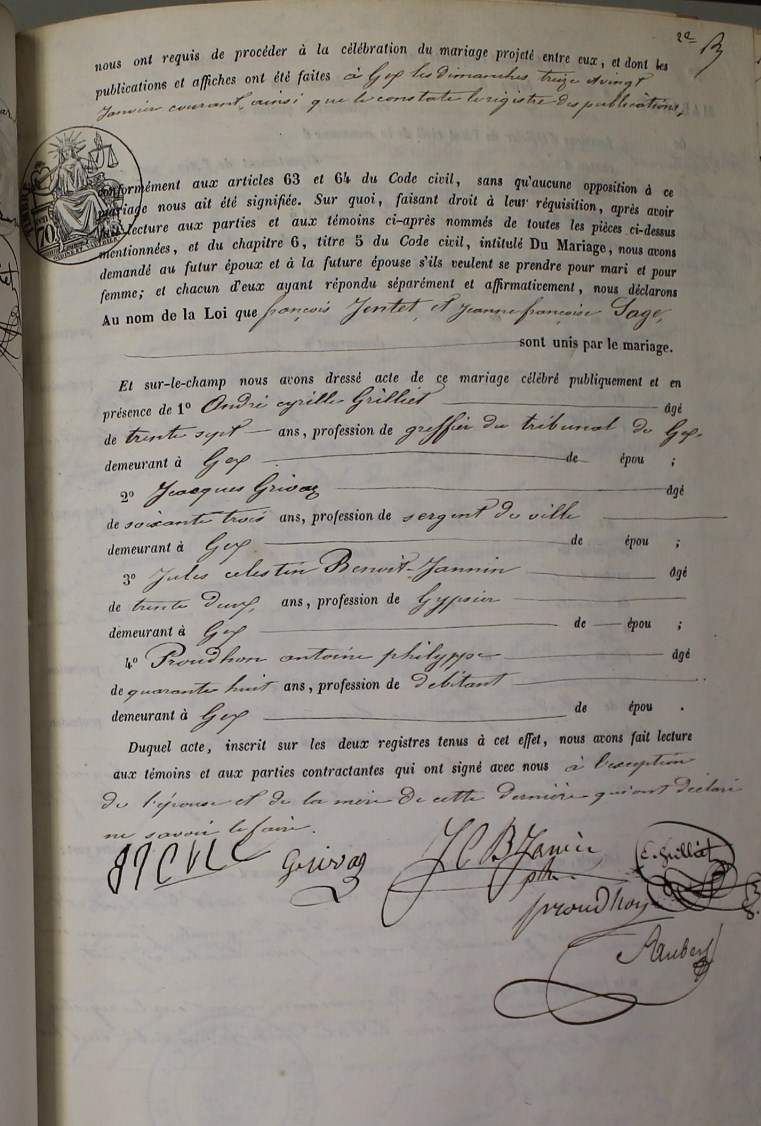 2e
nous ont requis de procéder à la célébration du mariage projeté entre eux, et dont les
publications et affiches ont été faites à Gex les dimanches treize et vingt
Janvier courant, ainsi que le constate le registre des publications,
Conformément aux articles 63 et 64 du Code civil, sans qu'aucune opposition à ce
mariage nous ait été signifiée. Sur quoi, faisant droit à leur réquisition, après avoir
lecture aux parties et aux témoins ci-après nommés de toutes les pièces ci-dessus
mentionnées, et du chapitre 6, titre 5 du Code civil, intitulé Du Mariage, nous avons
demandé au futur époux et à la future épouse s'ils veulent se prendre pour mari et pour
femme; et chacun d'eux ayant répondu séparément et affirmativement, nous déclarons
Au nom de la Loi que françois Jentet, et Jeanne françoise Sage,
sont unis par le mariage.
Et sur-le-champ nous avons dressé acte de ce mariage célébré publiquement et en
présence de 1º André cyrille Grilliet âgé
de trente sept ans, profession de greffier du tribunal de Gex,
demeurant à Gex de épou ;
2º Jacques Grivaz âgé
de soixante trois ans, profession de sergent de ville
demeurant à Gex de épou ;
3º Jules celestin Benoit-Jannin âgé
de trente deux, ans, profession de Gypsier
demeurant à Gex de épou ;
4º Proudhon antoine philyppe âgé
de quarante huit ans, profession de debitant
demeurant à Gex de épou .
Duquel acte, inscrit sur les deux registres tenus à cet effet, nous avons fait lecture
aux témoins et aux parties contractantes qui ont signé avec nous à l'exception
de l'épouse et de la mère de cette dernière qui ont déclaré
ne savoir le faire.
Grivaz
J C B Janin
proudhon